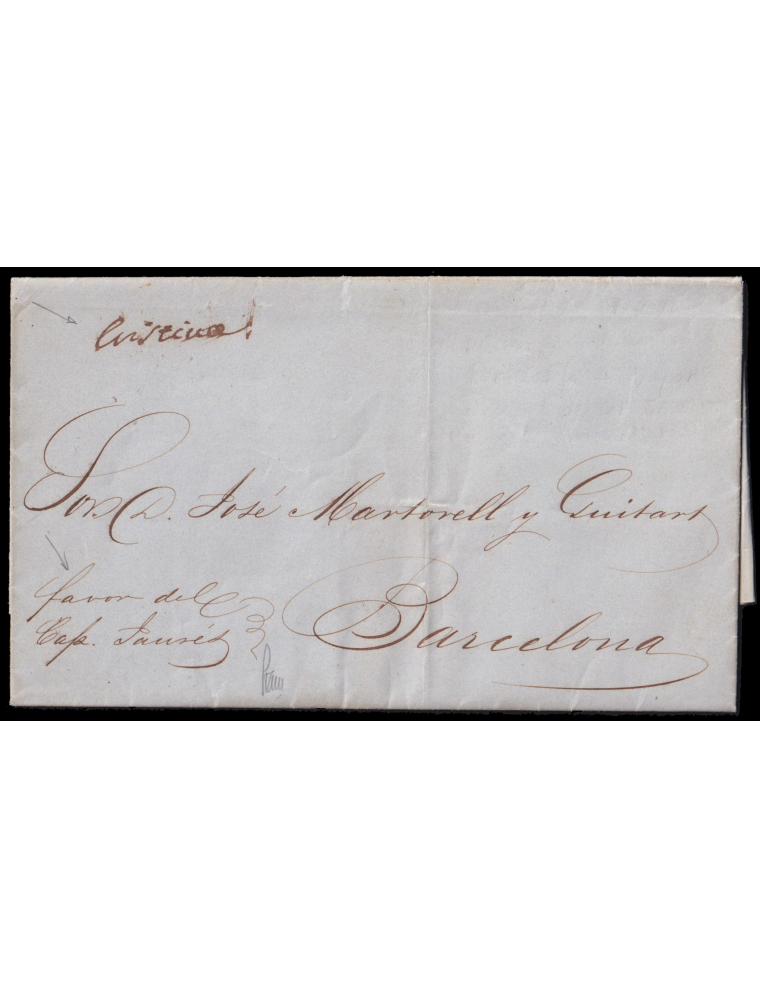 Cristina
Sor. D. José Martorell y Guitart
favor del
Cap. Jaurés
Barcelona